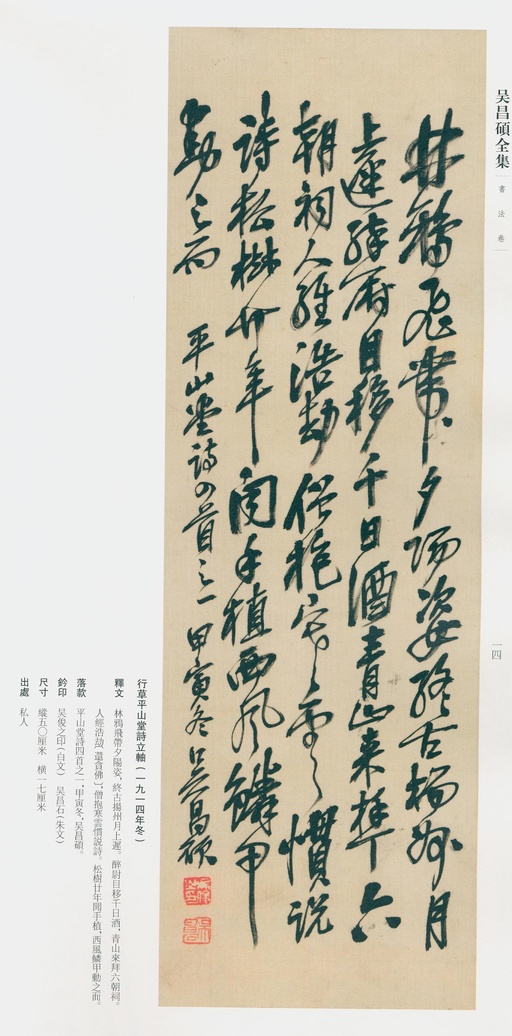 吴昌碩全集
書法卷
一四
林鴉飛帶夕陽姿終古揚州月
上遲醉尉目移千日酒青山來拜六
朝祠人經浩劫僧抱寒雲慣説
詩松樹廿年閒手植西風鱗甲
動之而 平山堂詩四首之一 甲寅冬吳昌碩
行草平山堂詩立軸(一九一四年冬)
釋文 林鴉飛帶夕陽姿，終古揚州月上遲。醉尉目移千日酒，青山來拜六朝祠。
人經浩劫〔還貪佛〕，僧抱寒雲慣説詩。松樹廿年閒手植，西風鱗甲動之而。
落款 平山堂詩四首之一。甲寅冬，吴昌碩。
鈐印 吴俊之印(白文) 吴昌石(朱文)
尺寸 縱五〇厘米 横一七厘米
出處 私人